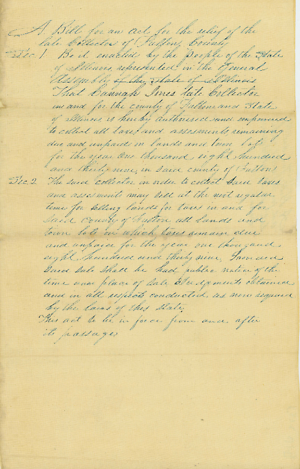 A Bill for an act for the relief of the
late Collector of Fulton County
Sec. 1 Be it enacted by the People of the State
of Illinois represented in the General
Assembly of the State of Illinois
That Jones late Collector
in and for the county of Fulton and State
of Illinois is hereby authorised and empowered
to collect all taxes and assessments remaining
due and unpaid on lands and town lots
for the year one thousand eight hundred
and thirty nine, in said county of Fulton
Sec. 2 The said collector in order to collect said taxes
and assessments may sell at the next regular
time for selling lands for taxes in and for
said County of Fulton all lands and
town lots on which taxes remain due
and unpaid for the year one thousand
eight hundred and thirty nine.
Said sale shall be had public notice of the
time and place of sale Judgments obtained
and in all respects conducted as now required
by the laws of this State,
This act to be in force from and after
its passage